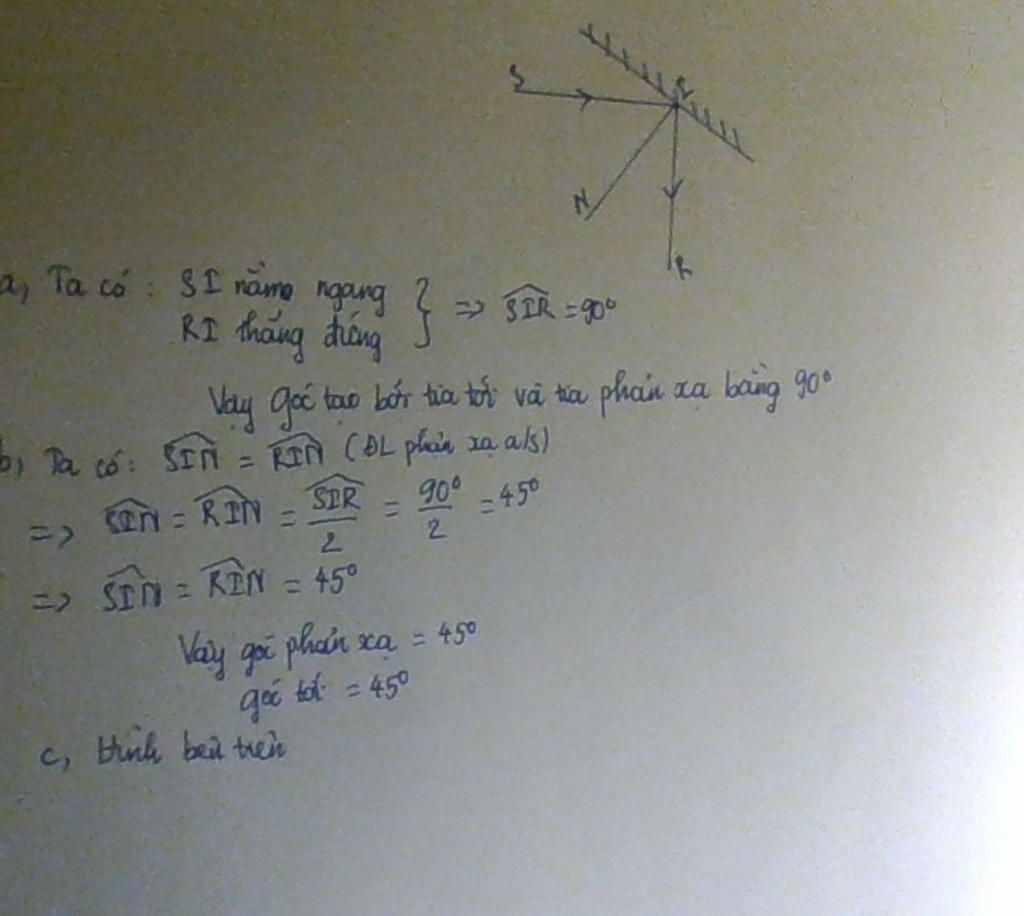 S
I
N
R
a, Ta có : SI nằm ngang
RI thẳng đứng } => SIR = 90°
Vậy góc tạo bởi tia tới và tia phản xạ bằng 90°
b, Ta có: SIN = RIN (ĐL phản xạ a/s)
=> SIN = RIN = SIR/2 = 90°/2 = 45°
=> SIN = RIN = 45°
Vậy góc phản xạ = 45°
góc tới = 45°
c, Hình bên trên